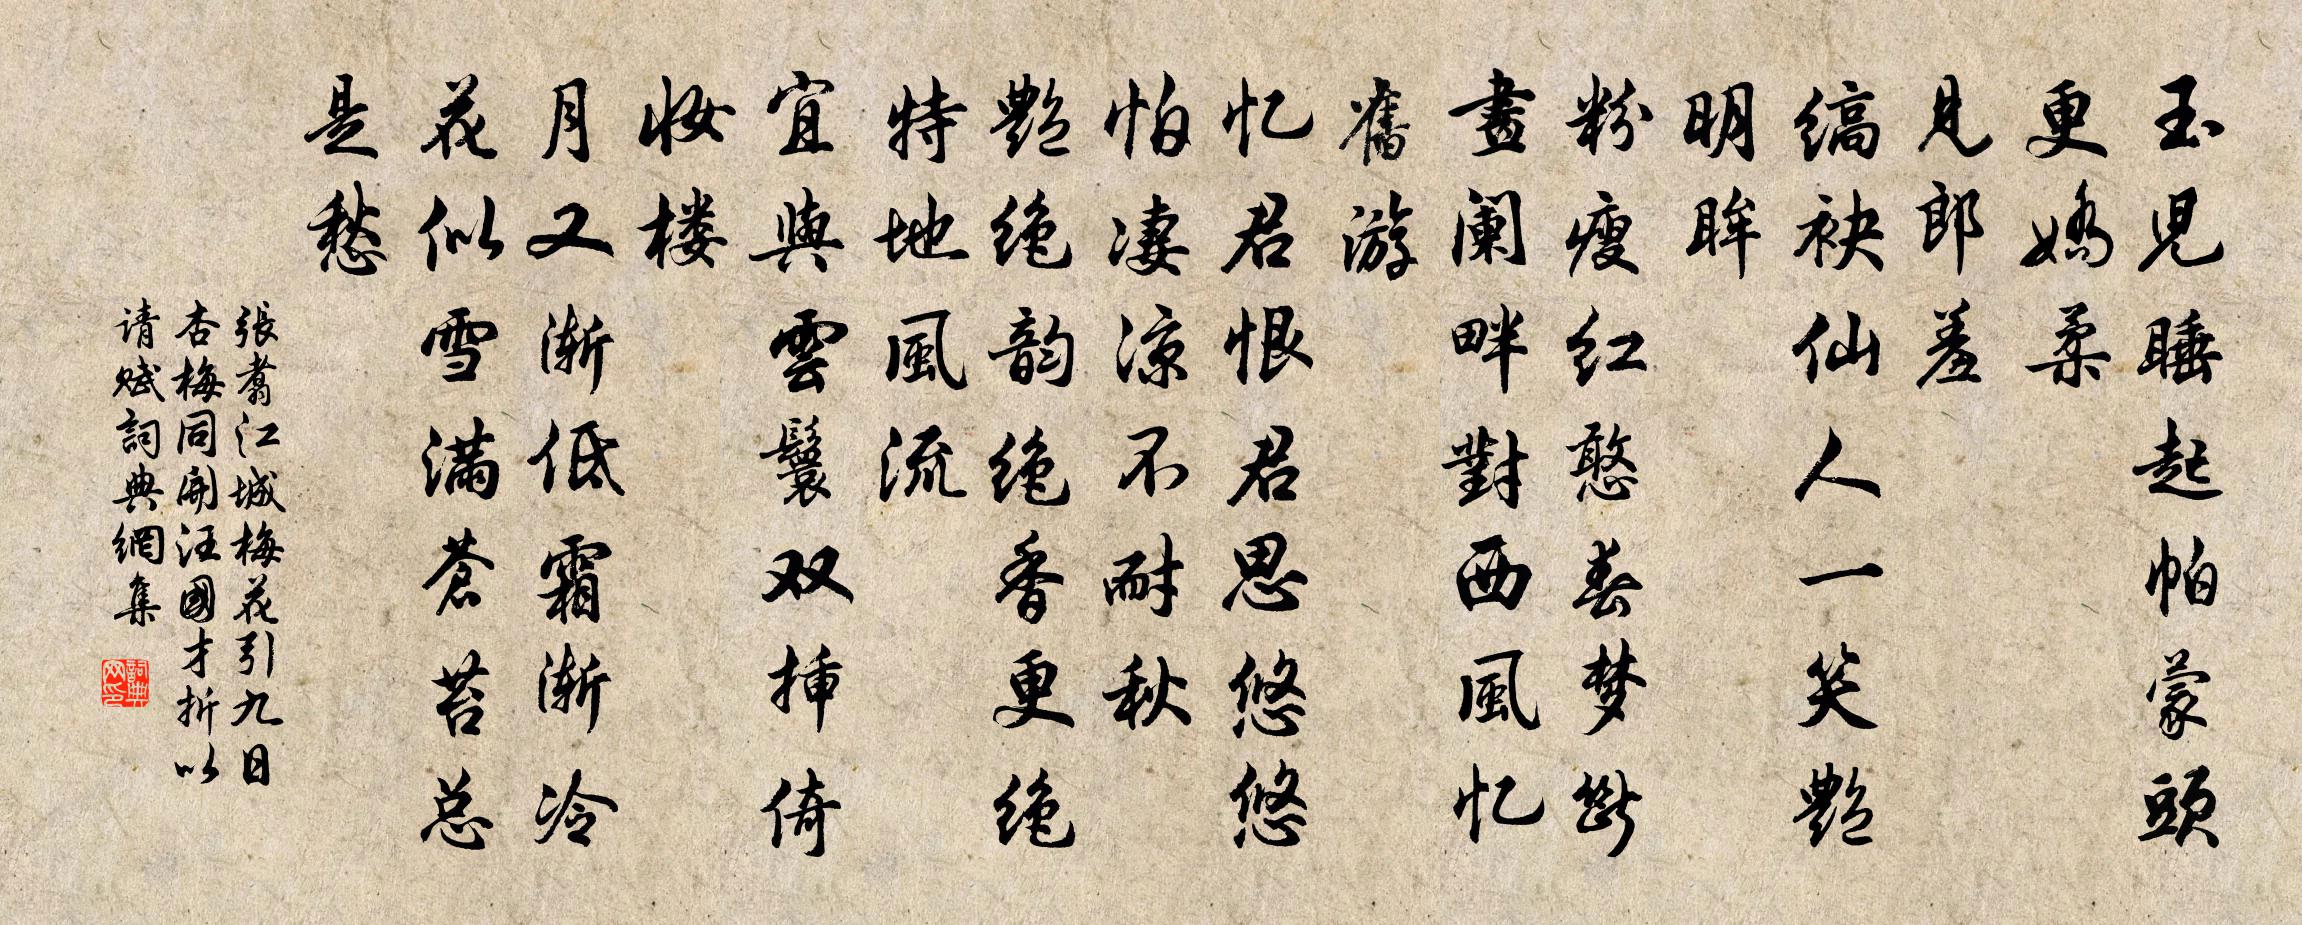 玉児睡起帕蒙頭
更嬌柔
見郎羞
縞袂仙人一笑艷
明眸
粉瘦红憨春梦断
畫阑畔對西風忆
舊游
忆君恨君思悠悠
怕凄凉不耐秋
艷绝韵绝香更绝
特地風流
宜與雲鬟双挿倚
妆楼
月又渐低霜渐冷
花似雪满蒼苔总
是愁
張翥江城梅花引九日
杏梅同開汪國才折以
请赋詞典網集
詞典网印